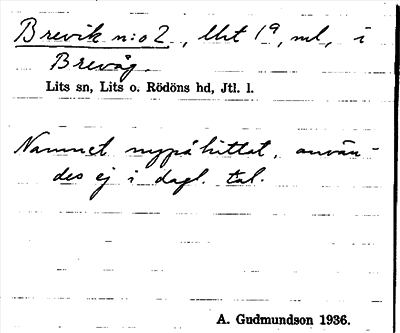 Brevik n:o 2, lht 1⁹, ml, i
Brevåg.
Lits sn, Lits o. Rödöns hd, Jtl. l.
Namnet nypåhittat, använ-
des ej i dagl. tal.
A. Gudmundson 1936.